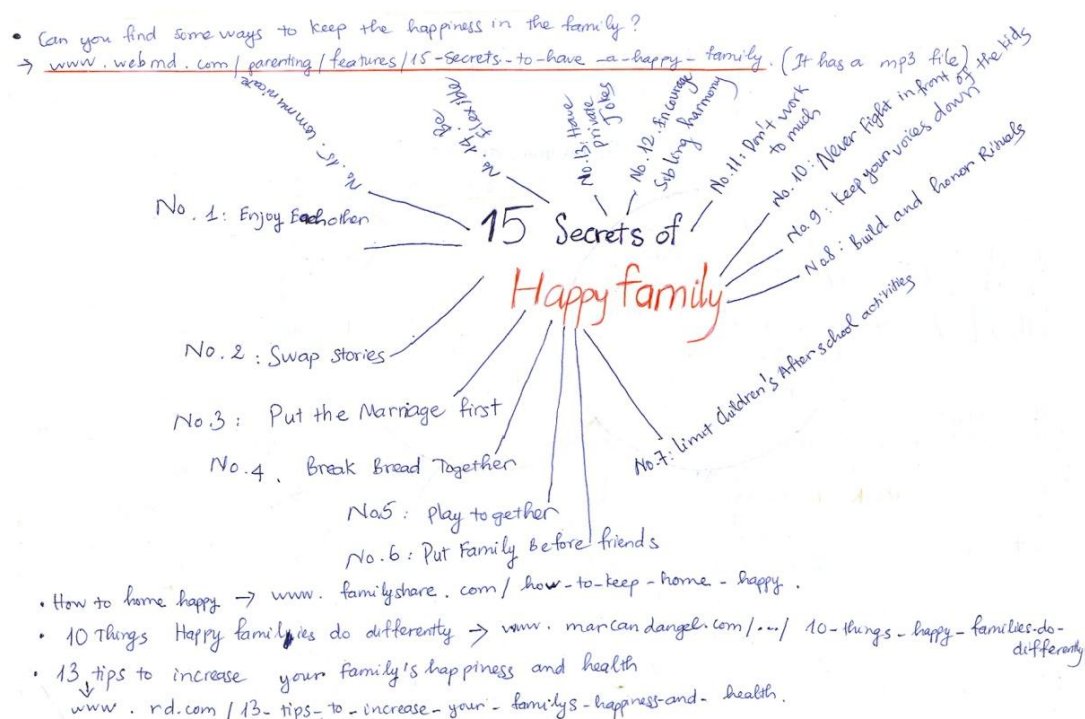 • Can you find some ways to keep the happiness in the family?
→ www.webmd.com/parenting/features/15-secrets-to-have-a-happy-family. (It has a mp3 file)
15 Secrets of
Happy family
No. 1: Enjoy Each other
No. 2: Swap stories
No. 3: Put the Marriage first
No. 4. Break Bread Together
No.5: Play together
No. 6: Put Family Before friends
No.7: Limit Children's After school activities
No.8: Build and honor Rituals
No.9: Keep your voices down
No. 10: Never Fight in front of the kids
No.11: Don't work
to much
No.12. Encourage
Sibling harmony
No.13: Have
private
Jokes
No.14. Be
flexible
No. 15. Communicate
• How to home happy → www.familyshare.com/how-to-keep-home-happy.
• 10 Things Happy families do differently → www.marcandangel.com/.../10-things-happy-families-do-
differently
• 13 tips to increase your family's happiness and health
www.rd.com/13-tips-to-increase-your-familys-happiness-and-health.